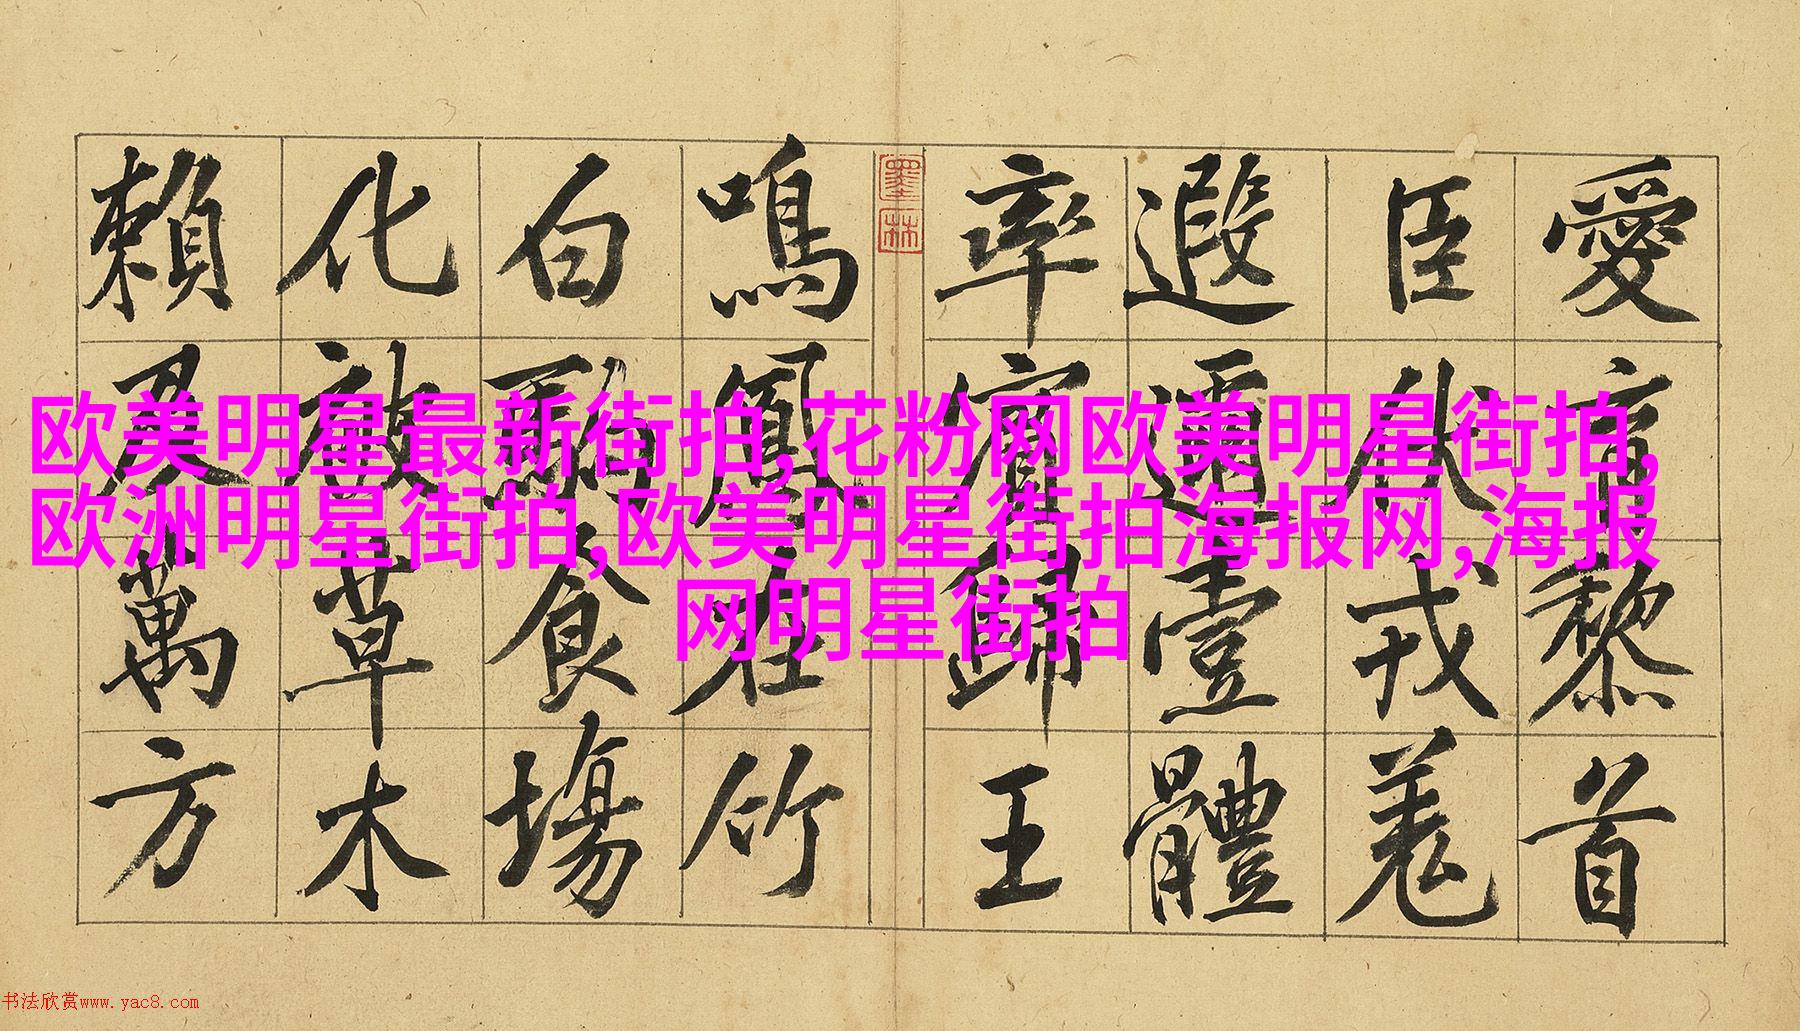 愛育黎首
臣伏戎羌
遐邇壹體
率賓歸王
鳴鳳在竹
白駒食場
化被草木
賴及萬方
墨林
欧美明星最新街拍,花粉网欧美明星街拍,
欧洲明星街拍,欧美明星街拍海报网,海报
网明星街拍
书法欣赏www.yac8.com